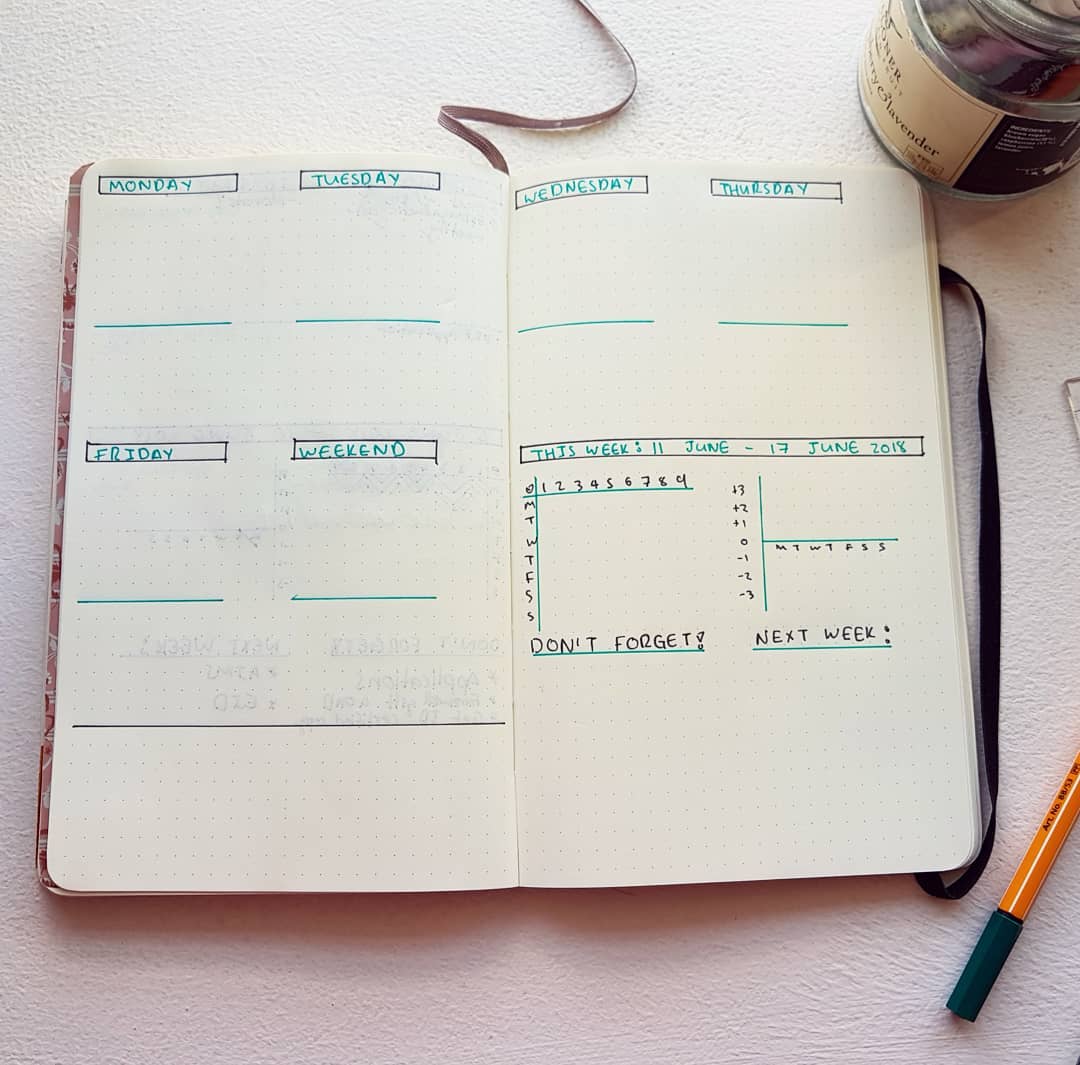 MONDAY
TUESDAY
WEDNESDAY
THURSDAY
FRIDAY
WEEKEND
THIS WEEK: 11 JUNE - 17 JUNE 2018
1 2 3 4 5 6 7 8 9
M
T
W
T
F
S
S
+3
+2
+1
0
-1
-2
-3
M T W T F S S
DON'T FORGET!
NEXT WEEK:
DON'T FORGET!
NEXT WEEK:
* Applications
lavender
INGREDIENTS
Art. No. 88/53